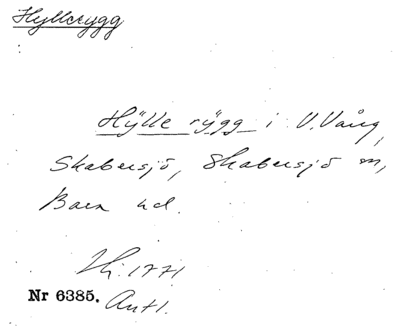 Hyllerygg
Hÿlle rÿgg i V. Vång,
Skabersjö, Skabersjö sn,
Bara hd.
1771
Nr 6385.